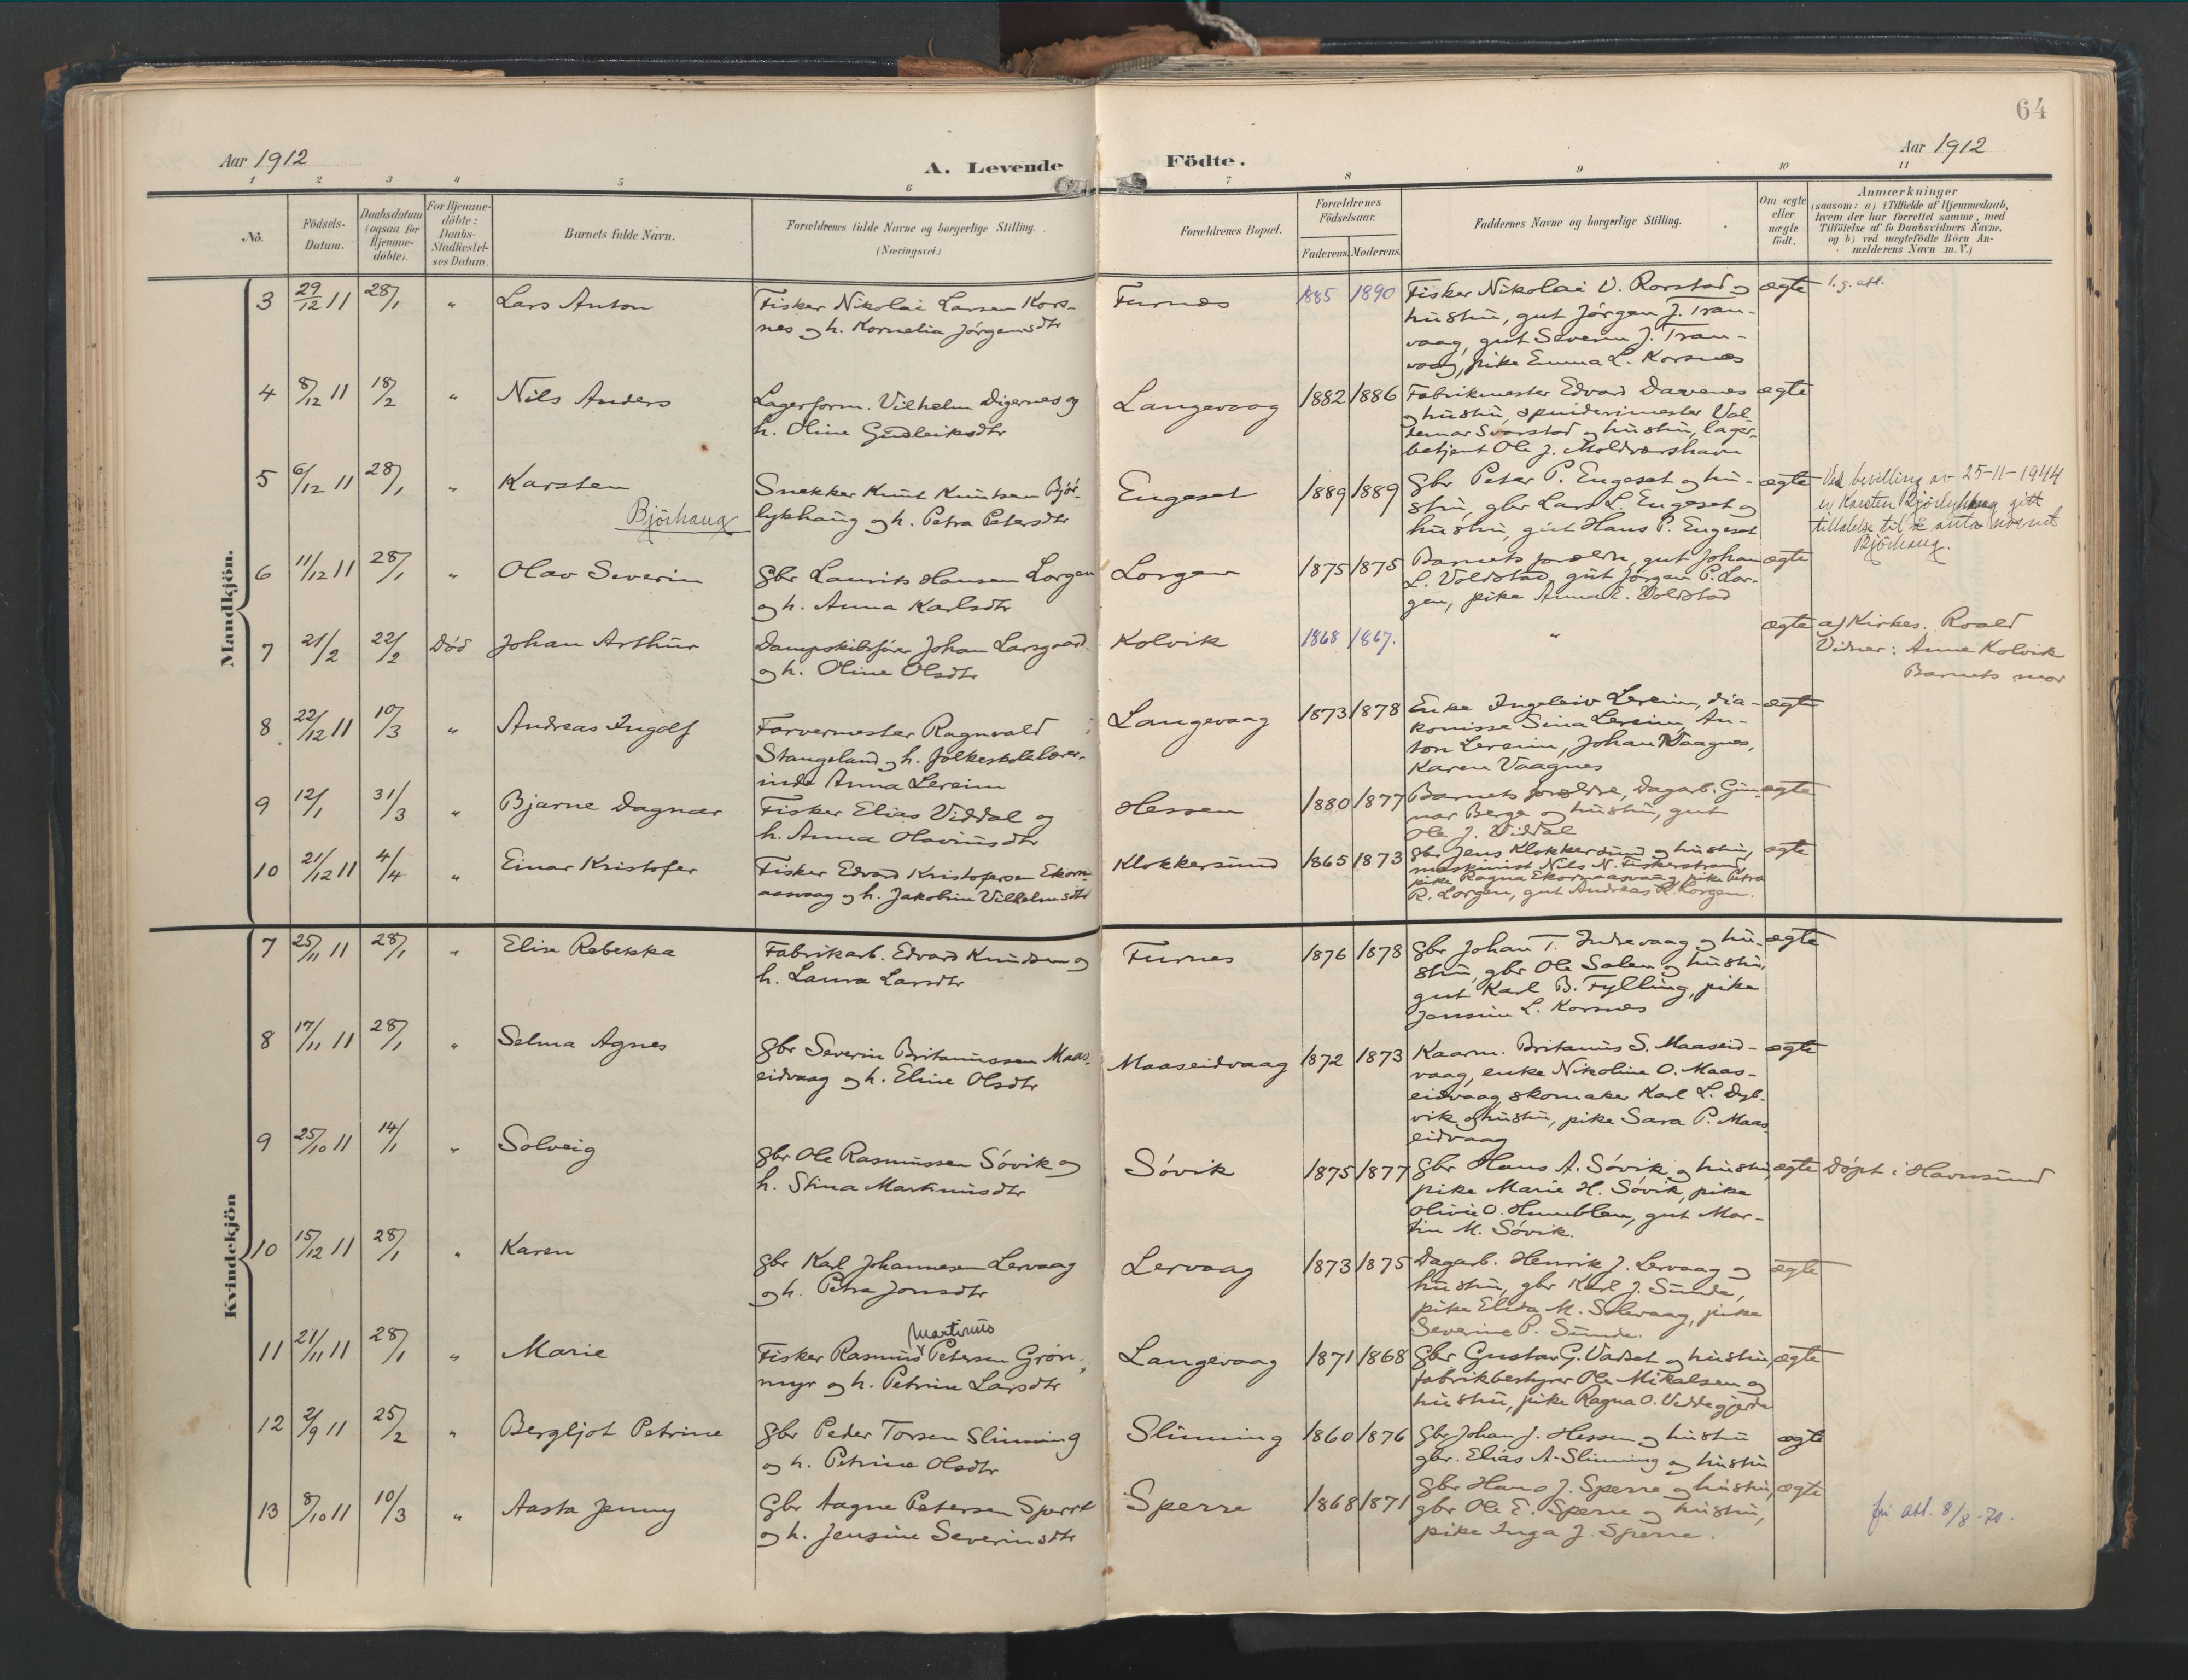 64
Aar 1912
A. Levende Födte.
Aar 1912
1 2 3 4 5 6 7 8 9 10 11
No.
Födsels-
Datum.
Daabsdatum
(ogsaa for
Hjemme-
döbte).
For Hjemme-
döbte:
Daabs-
Stadfæstel-
ses Datum.
Barnets fulde Navn.
Forældrenes fulde Navne og borgerlige Stilling.
(Næringsvei.)
Forældrenes Bopæl.
Forældrenes
Födselsaar.
Faderens. Moderens.
Faddernes Navne og borgerlige Stilling.
Om ægte
eller
uægte
födt.
Anmærkninger
(saasom: a) i Tilfælde af Hjemmedaab,
hvem der har forrettet samme, med
Tilföielse af to Daabsvidners Navne,
og b) ved uægtefödte Börn An-
melderens Navn m. V.)
Mandkjön.
3 29/12 11 28/1 " Lars Anton
Fisker Nikolai Larsen Kors-
nes og h. Kornelia Jörgensdtr
Furnes 1885 1890
Fisker Nikolai V. Rorstad og
hustru, gut Jörgen J. Tran-
vaag, gut Severin J. Tran-
vaag, pike Emma L. Korsnes
ægte
4 8/12 11 18/2 " Nils Anders
Lagerform. Vilhelm Digernes og
h. Oline Gudleiksdtr
Langevaag 1882 1886
Fabrikmester Edvard Davenes
og hustru, spinderimester Val
demar Svorstad og hustru, lager-
betjent Ole J. Moldværshavn
ægte
5 6/12 11 28/1 " Karsten
Bjöihaug
Snekker Knut Knutsen Björ-
lykhaug og h. Petra Petersdtr
Engeset 1889 1889
Gbr Peter P. Engeset og hu-
stru, gbr Lars L. Engeset og
hustru, gut Hans P. Engeset
ægte
Ved bevilling av 25-11-1944
er Karsten Björlykhaug gitt
tillatelse til å anta navnet
Björhaug.
6 11/12 11 28/1 " Olav Severin
Gbr Laurits Hansen Lorgen
og h. Anna Karlsdtr
Lorgen 1875 1875
Barnets forældre, gut Johan
L. Voldstad, gut Jörgen P. Lor-
gen, pike Anna E. Voldstad
ægte
7 21/2 22/2 Död Johan Arthur
Dampskibsförer Johan Larsgaard
og h. Oline Olsdtr
Kolvik 1868 1867.
"
ægte
af Kirkes. Roald
Vidner: Anne Kolvik
Barnets mor
8 22/12 11 10/3 " Andreas Ingolf
Farvermester Ragnvald
Stangeland og h. folkeskolelærer-
inde Anna Lereim
Langevaag 1873 1878
Enke Ingeleiv Lereim, dia-
konisse Sina Lereim, An-
ton Lereim, Johan Vaagnes,
Karen Vaagnes
ægte
9 12/1 31/3 " Bjarne Dagnar
Fisker Elias Viddal og
h. Anna Olavinsdtr
Hessen 1880 1877
Barnets forældre, Dagarb. Gun-
nar Berge og hustru, gut
Ole J. Viddal
ægte
10 21/12 11 4/4 " Einar Kristofer
Fisker Edvard Kristofersen Ekorn-
aasvaag og h. Jakobine Vilhelmsdtr
Klokkersund 1865 1873
Gbr Jens Klokkersund og hustru,
maskinist Nils N. Fiskerstrand,
pike Ragna Ekornaasvaag, pike Petra
R. Lorgen, gut Andreas R. Lorgen.
ægte
Kvindekjön
7 25/11 11 28/1 " Elise Rebekka
Fabrikarb. Edvard Knudsen og
h. Laura Larsdtr
Furnes 1876 1878
Gbr Johan T. Indrevaag og hu-
stru, gbr Ole Salen og hustru,
gut Karl B. Fylling, pike
Jensine L. Korsnes
ægte
8 17/11 11 28/1 " Selma Agnes
Gbr Severin Britaniussen Maas-
eidvaag og h. Eline Olsdtr
Maaseidvaag 1872 1873
Kaarm. Britanius S. Maaseid-
vaag, enke Nikoline O. Maas-
eidvaag, skomaker Karl L. Dyb-
vik og hustru, pike Sara P. Maas
eidvaag
ægte
9 25/10 11 14/1 " Solveig
Gbr Ole Rasmussen Sövik og
h. Stina Martinusdtr
Sövik 1875 1877
Gbr Hans A. Sövik og hustru,
pike Marie H. Sövik, pike
Olivie O. Humblen, gut Mar-
tin M. Sövik.
ægte
Döpt i Havnsund
10 15/12 11 28/1 " Karen
Gbr Karl Johannesen Lervaag
og h. Petra Jonsdtr
Lervaag 1873 1875
Dagarb. Henrik J. Lervaag og
hustru, gbr Karl J. Sunde,
pike Elida M. Solevaag, pike
Severine P. Sunde.
ægte
11 21/11 11 28/1 " Marie
Martinus
Fisker Rasmus Petersen Grön-
myr og h. Petrine Larsdtr
Langevaag 1871 1868
Gbr Gustav G. Vadset og hustru,
fabrikbestyrer Ole Mikalsen og
hustru, pike Ragna O. Veddegjerde
ægte
12 2/9 11 25/2 " Bergljot Petrine
Gbr Peder Torsen Slinning
og h. Petrine Olsdtr
Slinning 1860 1876
Gbr Johan J. Hessen og hustru
gbr. Elias A. Slinning og hustru
ægte
13 8/10 11 10/3 " Aasta Jenny
Gbr Aagne Petersen Sperre
og h. Jensine Severinsdtr
Sperre 1868 1871
Gbr Hans J. Sperre og hustru,
gbr Ole E. Sperre og hustru,
pike Inga J. Sperre.
ægte
fri att. 8/8-70.